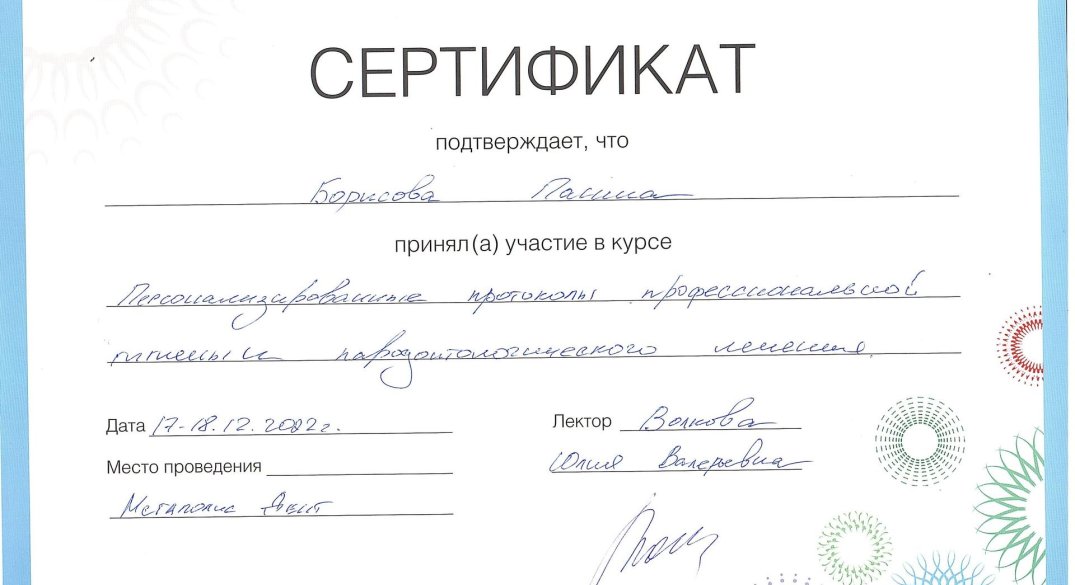 СЕРТИФИКАТ
подтверждает, что
Борисова
принял(а) участие в курсе
Персонализированные протоколы профессиональной
гигиены и пародонтологического лечения
Дата 17-18.12.2022г.
Лектор Волкова
Юлия Валерьевна
Место проведения
Мегаполис Дент